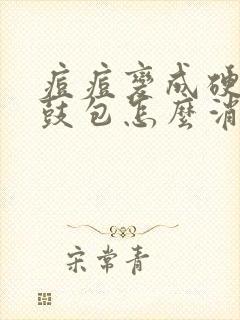 痘痘變成硬
鼓包怎麼消
宋常青